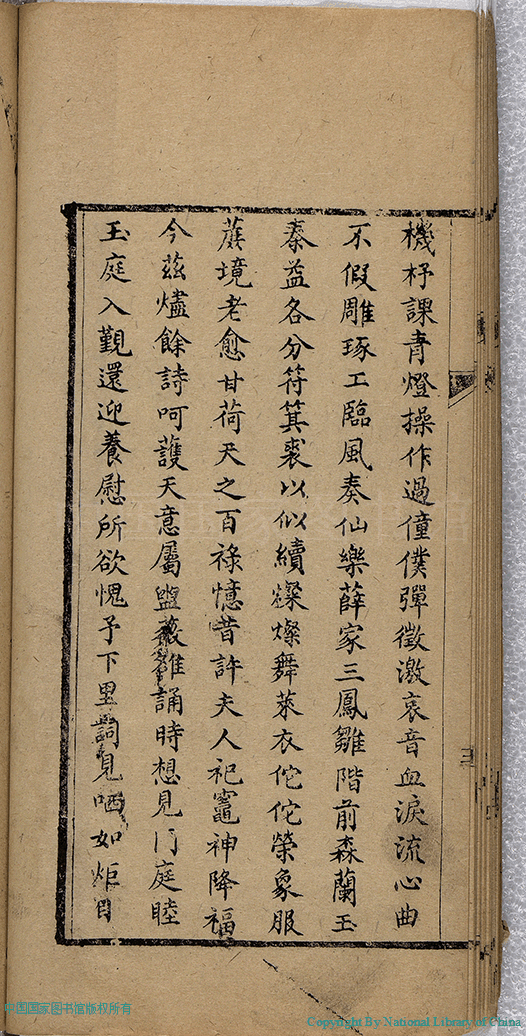 機杼課青燈操作過僮僕彈徵激哀音血淚流心曲
不假雕琢工臨風奏仙樂薛家三鳳雛階前森蘭玉
秦益各分符箕裘以似續粲燦舞萊衣佗佗榮象服
蔗境老愈甘荷天之百祿憶昔許夫人祀竈神降福
今茲燼餘詩呵護天意屬盥薇雒誦時想見门庭睦
玉庭入覲還迎養慰所欲愧予下里詞見哂如炬目
三
中国国家图书馆版权所有
Copyright By National Library of China